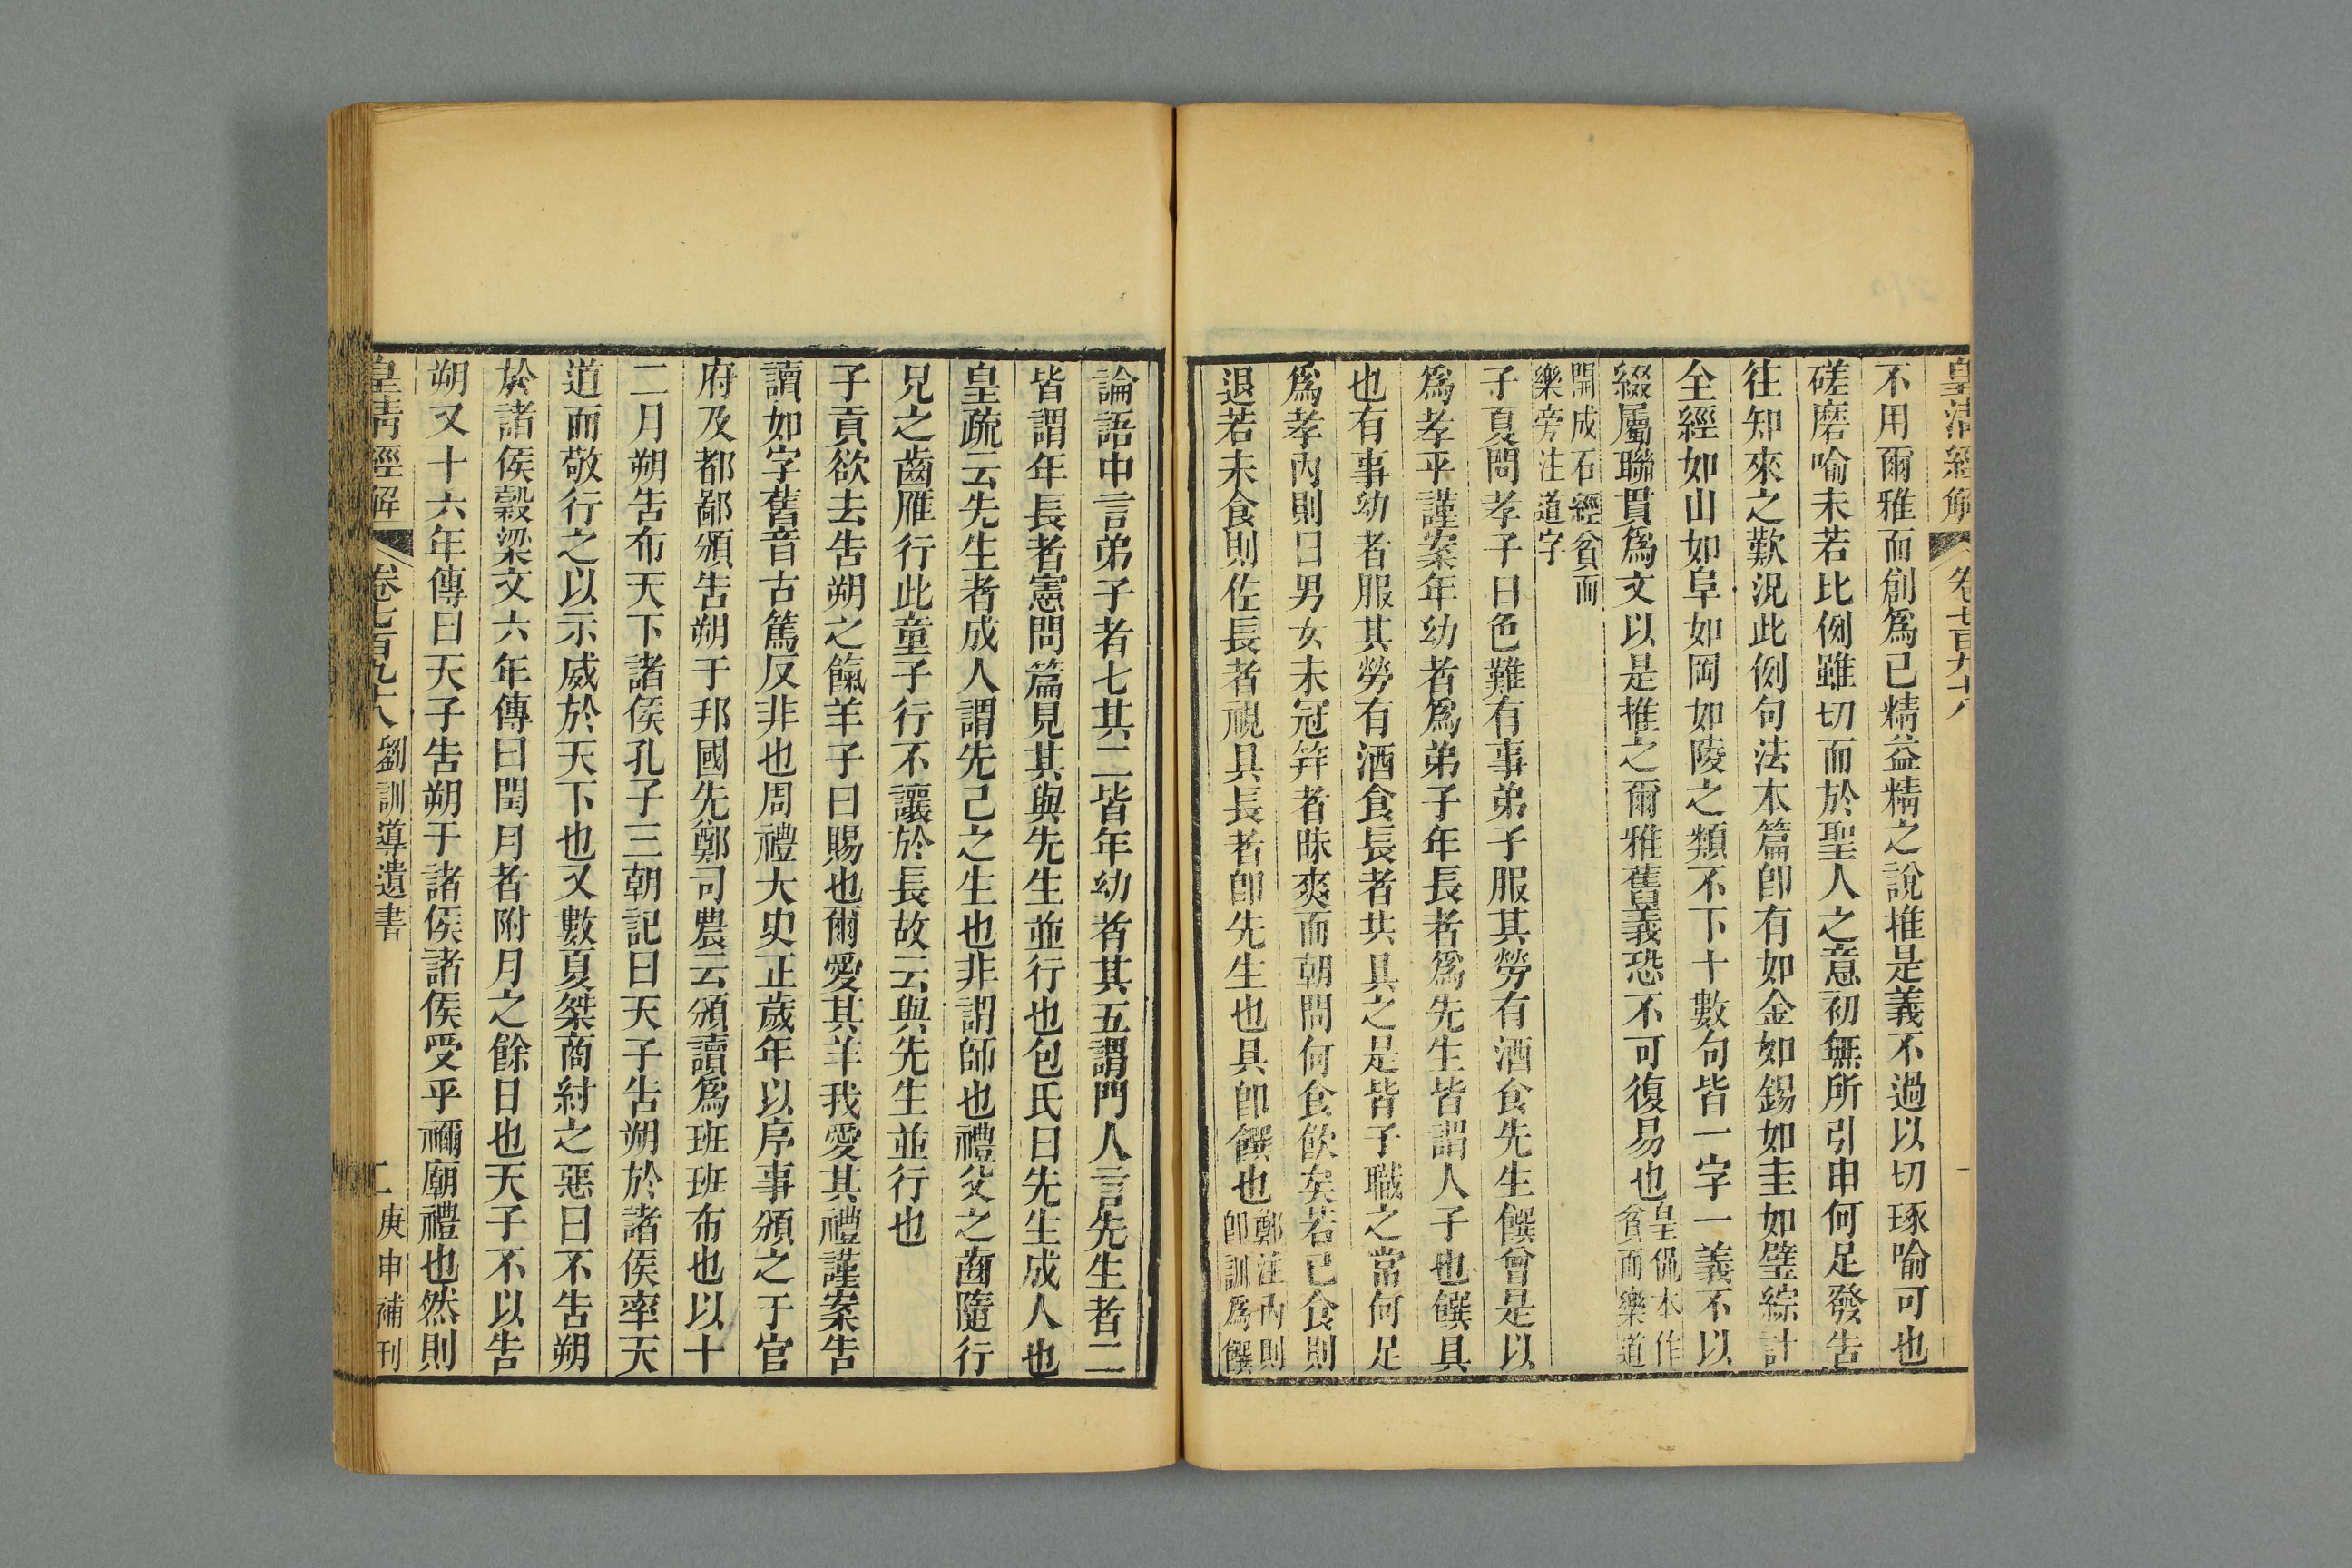 皇清經解 卷七百九十八 一
不用爾雅而創爲已精益精之說推是義不過以切琢喻可也
磋磨喻未若比例雖切而於聖人之意初無所引申何足發告
往知來之歎況此例句法本篇卽有如金如錫如圭如璧綜計
全經如山如阜如岡如陵之類不下十數句皆一字一義不以
綴屬聯貫爲文以是推之爾雅舊義恐不可復易也皇侃本作
貧而樂道
開成石經貧而
樂旁注道字
子夏問孝子曰色難有事弟子服其勞有酒食先生饌曾是以
爲孝乎謹案年幼者爲弟子年長者爲先生皆謂人子也饌具
也有事幼者服其勞有酒食長者共具之是皆子職之常何足
爲孝內則曰男女未冠笄者昧爽而朝問何食飲矣若已食則
退若未食則佐長者視具長者卽先生也具卽饌也鄭注內則
卽訓爲饌
論語中言弟子者七其二皆年幼者其五謂門人言先生者二
皆謂年長者憲問篇見其與先生並行也包氏曰先生成人也
皇疏云先生者成人謂先己之生也非謂師也禮父之齒隨行
兄之齒雁行此童子行不讓於長故云與先生並行也
子貢欲去告朔之餼羊子曰賜也爾愛其羊我愛其禮謹案告
讀如字舊音古篤反非也周禮大史正歲年以序事頒之于官
府及都鄙頒告朔于邦國先鄭司農云頒讀爲班班布也以十
二月朔告布天下諸侯孔子三朝記曰天子告朔於諸侯率天
道而敬行之以示威於天下也又數夏桀商紂之惡曰不告朔
於諸侯穀梁文六年傳曰閏月者附月之餘日也天子不以告
朔又十六年傳曰天子告朔于諸侯諸侯受乎禰廟禮也然則
皇清經解 卷七百九十八 劉訓導遺書 二 庚申補刊